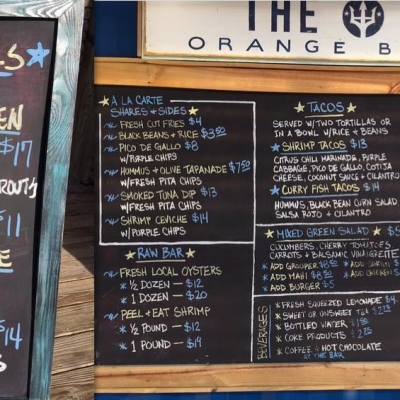 THE
ORANGE B
S
EN
$17
ROUTS
$11
E
$14
S
A LA CARTE
SHARES + SIDES
FRESH CUT FRIES $4
BLACK BEANS + RICE $3.50
PICO DE GALLO $8
W/PURPLE CHIPS
HUMMUS + OLIVE TAPANADE $7.50
W/FRESH PITA CHIPS
SMOKED TUNA DIP $13
W/FRESH PITA CHIPS
SHRIMP CEVICHE $14
W/PURPLE CHIPS
RAW BAR
FRESH LOCAL OYSTERS
½ DOZEN - $12
1 DOZEN - $20
PEEL + EAT SHRIMP
½ POUND - $12
1 POUND - $19
TACOS
SERVED W/TWO TORTILLAS OR
IN A BOWL W/RICE + BEANS
SHRIMP TACOS $13
CITRUS CHILI MARINADE, PURPLE
CABBAGE, PICO DE GALLO, COTIJA
CHEESE, COCONUT SAUCE + CILANTRO
CURRY FISH TACOS $14
HUMMUS, BLACK BEAN CORN SALAD
SALSA ROJO + CILANTRO
MIXED GREEN SALAD $
CUCUMBERS, CHERRY TOMATOES
CARROTS + BALSAMIC VINAIGRETTE
ADD GROUPER ADD
ADD MAHI ADD CHICKEN
ADD BURGER $5
BEVERAGES
FRESH SQUEEZED LEMONADE
SWEET OR UNSWEET TEA
BOTTLED WATER
COKE PRODUCTS
COFFEE + HOT CHOCOLATE
AT THE BAR